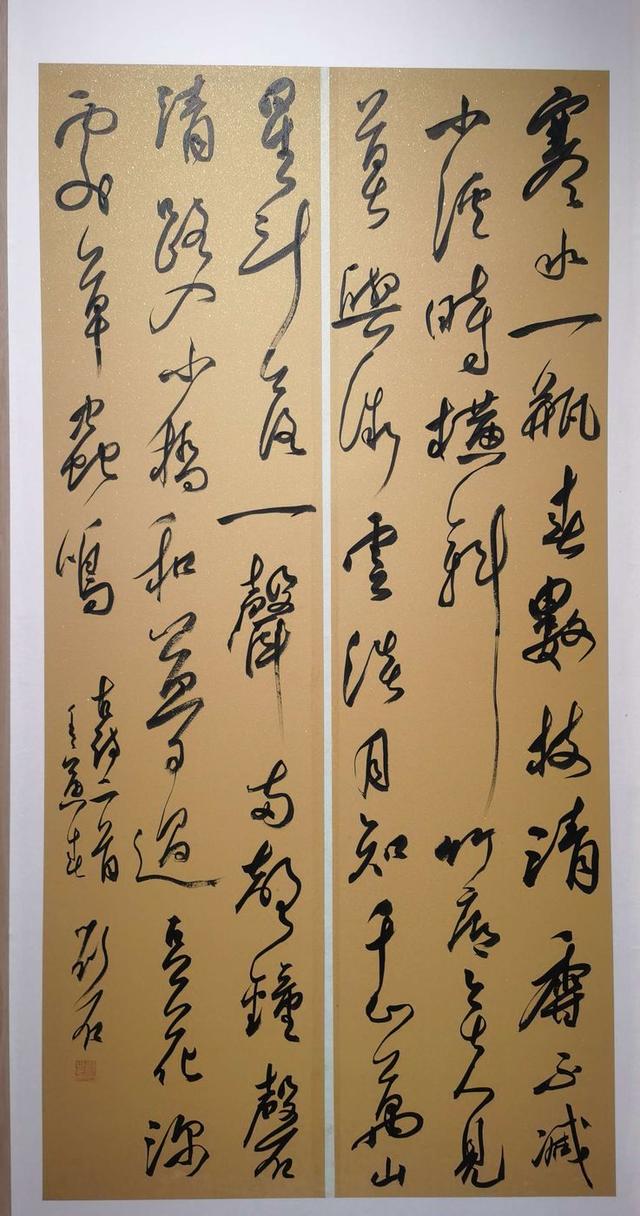 寒水一瓶春數枝清香不減
小溪時橫斜竹底無人見
莫與微雲淡月知千山萬山
星斗落一聲兩聲鐘磬
清路入小橋和夢過豆花深
處草蟲鳴
古詩二首
壬寅春 劉石